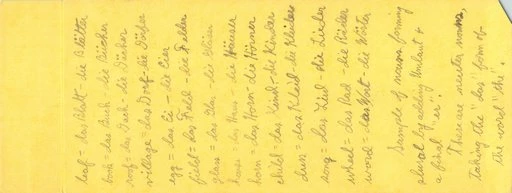 leaf = das Blatt - die Blätter
book = das Buch - die Bücher
roof = das Dach - die Dächer
village = das Dorf - die Dörfer
egg = das Ei - die Eier
field = das Feld - die Felder
glass = das Glas - die Gläser
house = das Haus - die Häuser
horn = das Horn - die Hörner
child = das Kind - die Kinder
dress = das Kleid - die Kleider
song = das Lied - die Lieder
wheel = das Rad - die Räder
word = das Wort - die Wörter
Sample of nouns forming
plural by adding Umlaut &
a final "er"!
These are neuter nouns,
taking the "das" form of
the word "the".